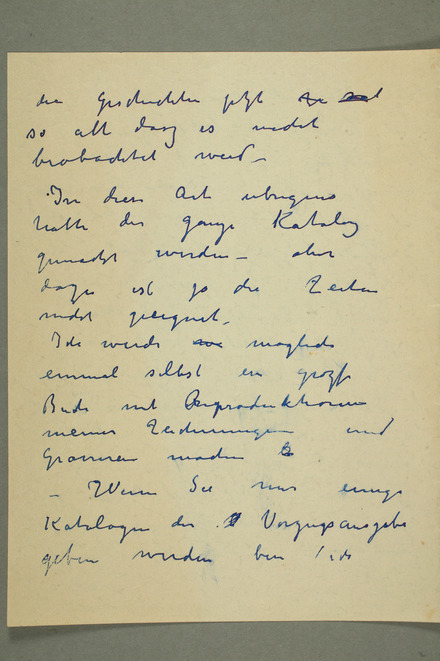 die Geschichten jetzt
so alt dasz es nicht
beobachtet werd –
In dieser Art ubrigens
hatte der ganze Katalog
gemacht werden – aber
dazu ist ja die Zeiten
nicht geeignet.
Ich werde moglich
einmal selbst ein groszes
Buch mit Reproduktionen
meiner Zeichnungen und
Gravuren machen
– Wenn Sie mir einige
Katalogen der Vorzugsausgabe
geben werden ben ich